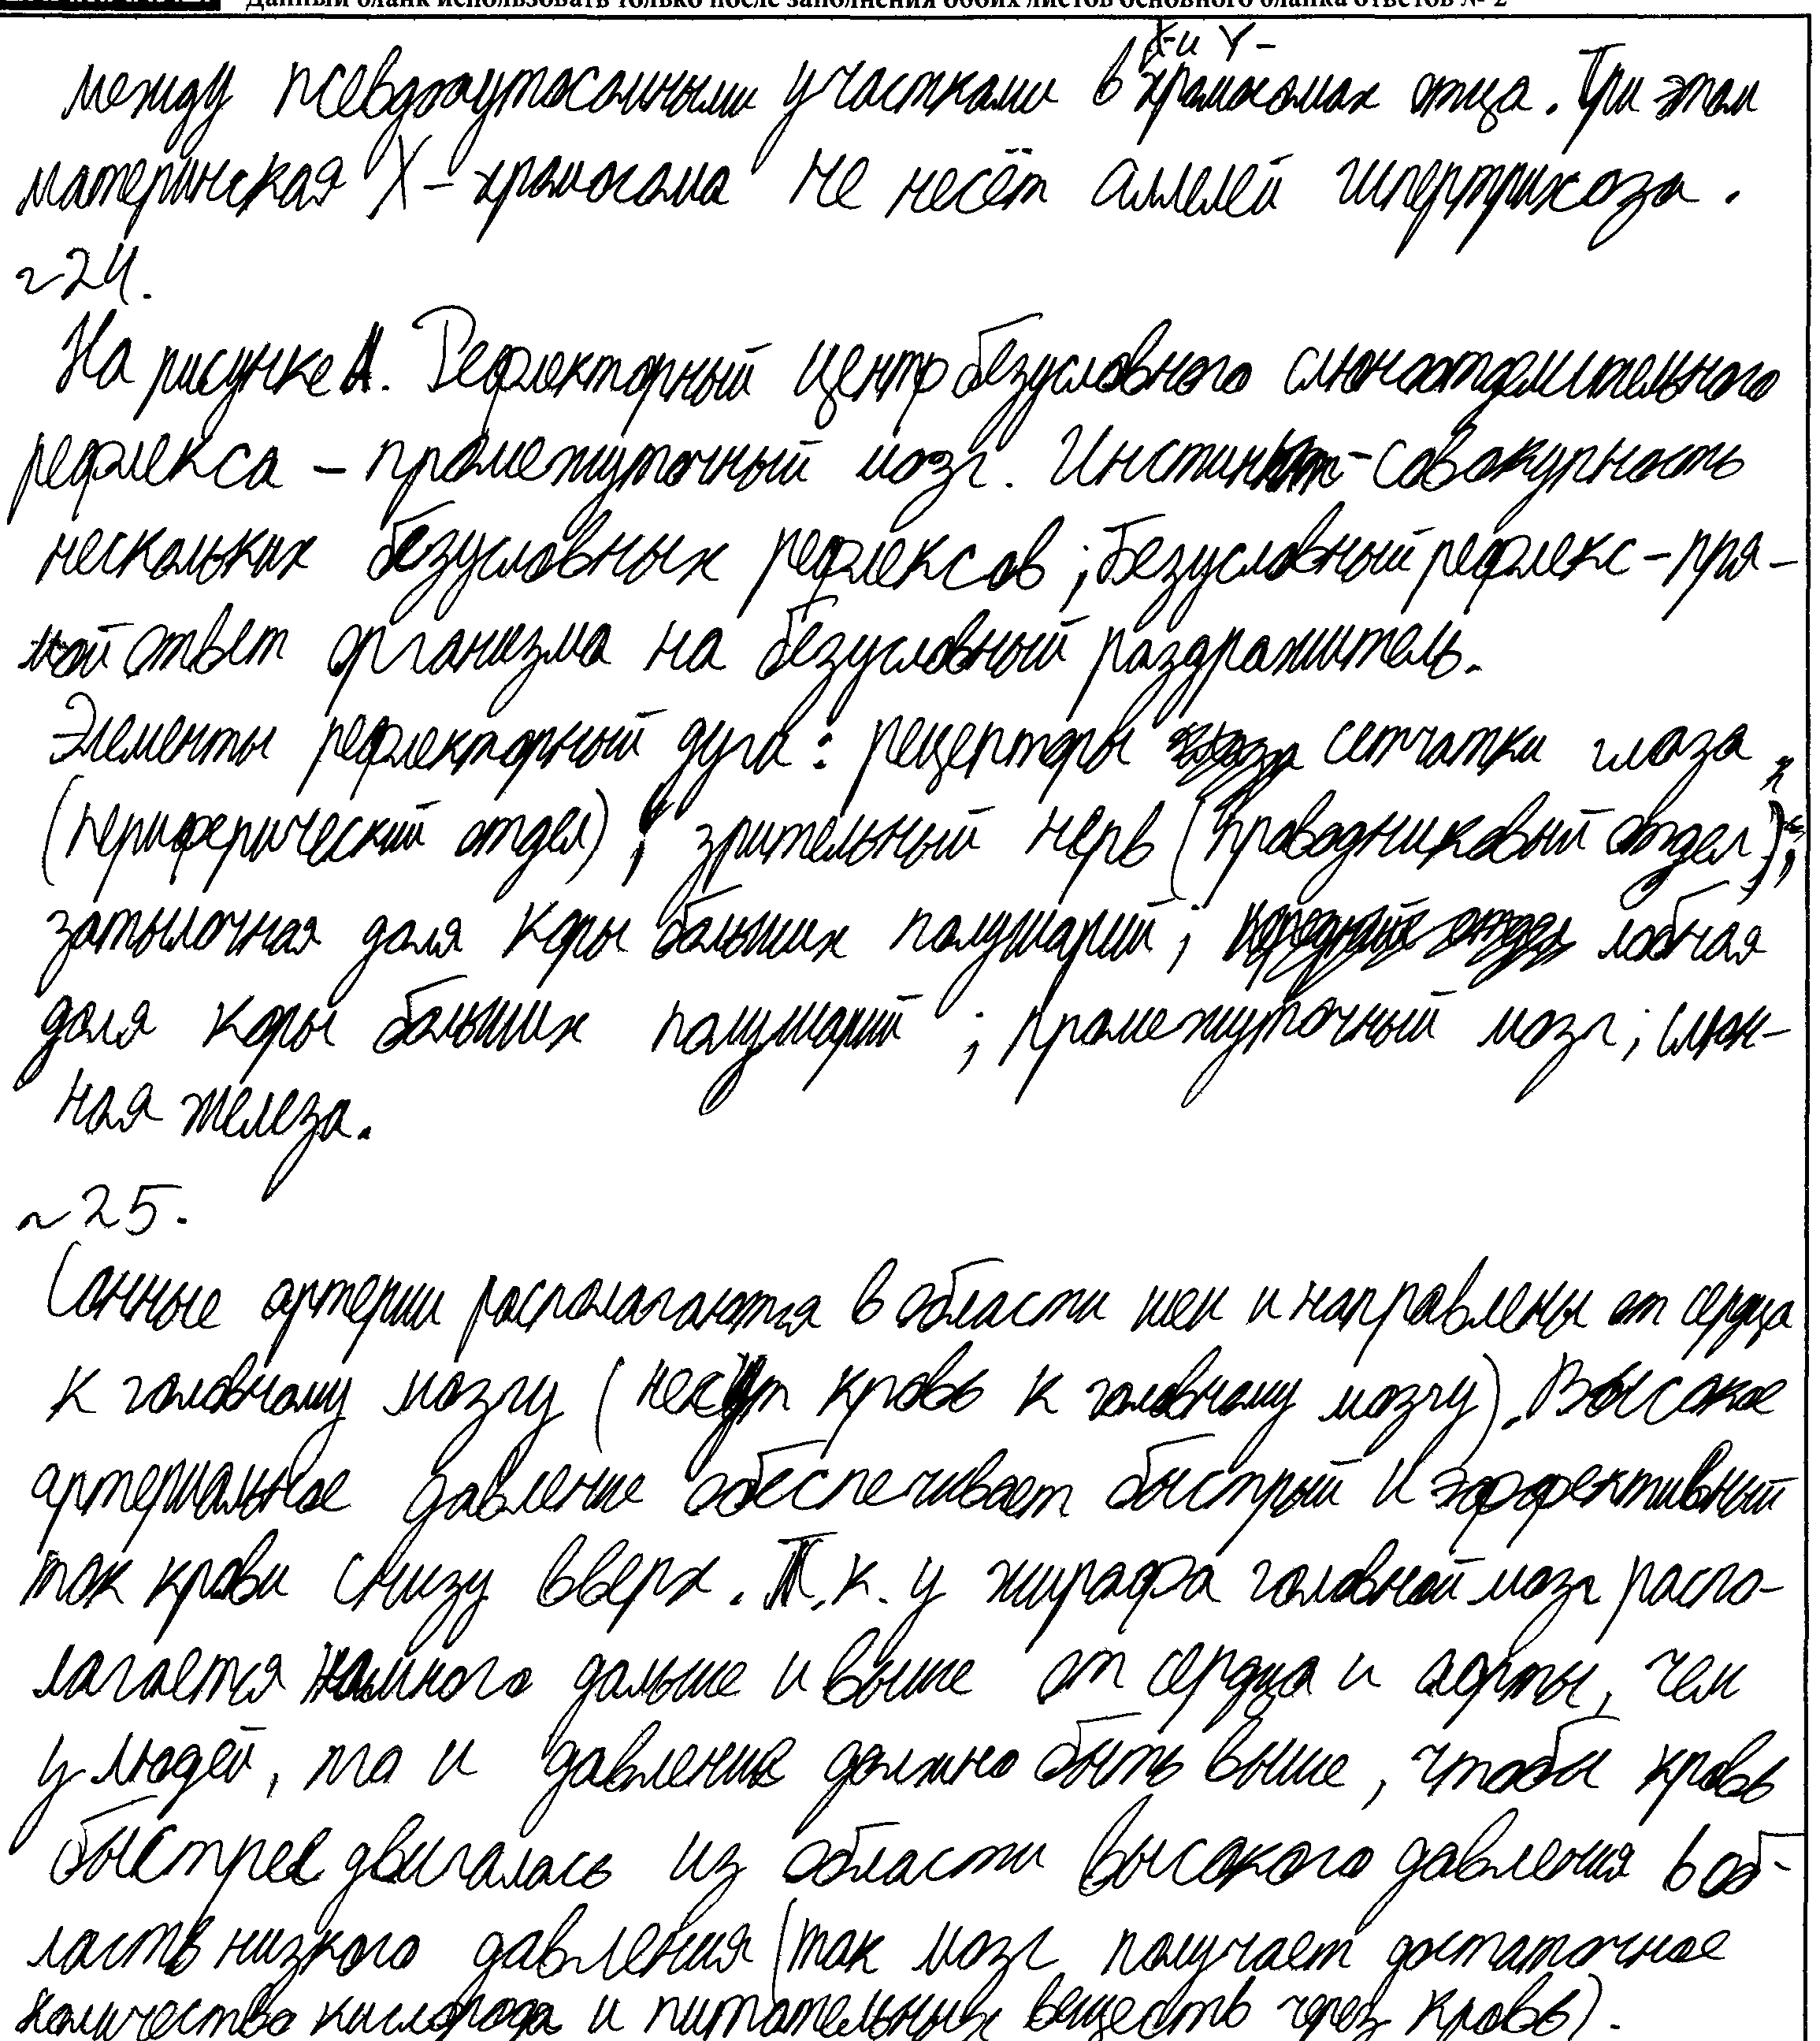 Данный бланк использовать только после заполнения обоих листов основного бланка ответов № 2
X- и Y-
между псевдоаутосомными участками в хромосомах отца. При этом
материнская X-хромосома не несёт аллелей гипертрихоза.
~24.
На рисунке А. Рефлекторный центр безусловного слюноотделительного
рефлекса – промежуточный мозг. Инстинкт-совокупность
нескольких безусловных рефлексов; безусловный рефлекс-пря-
мой ответ организма на безусловный раздражитель.
Элементы рефлекторный дуги: рецепторы сетчатки глаза
(периферический отдел); зрительный нерв (проводниковый отдел);
затылочная доля коры больших полушарий; лобная
доля коры больших полушарий; промежуточный мозг; слюн-
ная железа.
~25.
Сонные артерии располагаются в области шеи и направлены от сердца
к головному мозгу (несут кровь к головному мозгу). Высокое
артериальное давление обеспечивает быстрый и эффективный
ток крови снизу вверх. Т.к. у жирафа головной мозг распо-
лагается намного дальше и выше от сердца и аорты, чем
у людей, то и давление должно быть выше, чтобы кровь
быстрее двигалась из области высокого давления в об-
ласть низкого давления (так мозг получает достаточное
количество кислорода и питательных веществ через кровь).